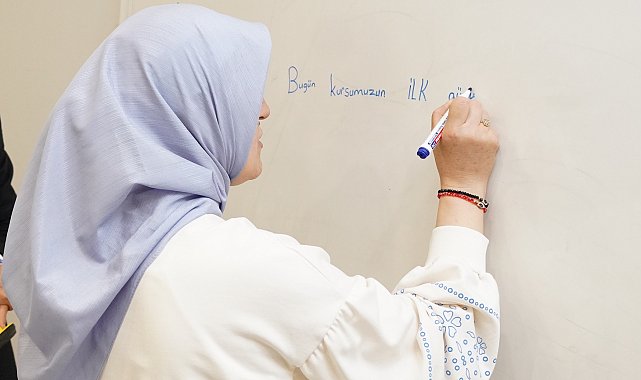 Bugün kursumuzun İLK